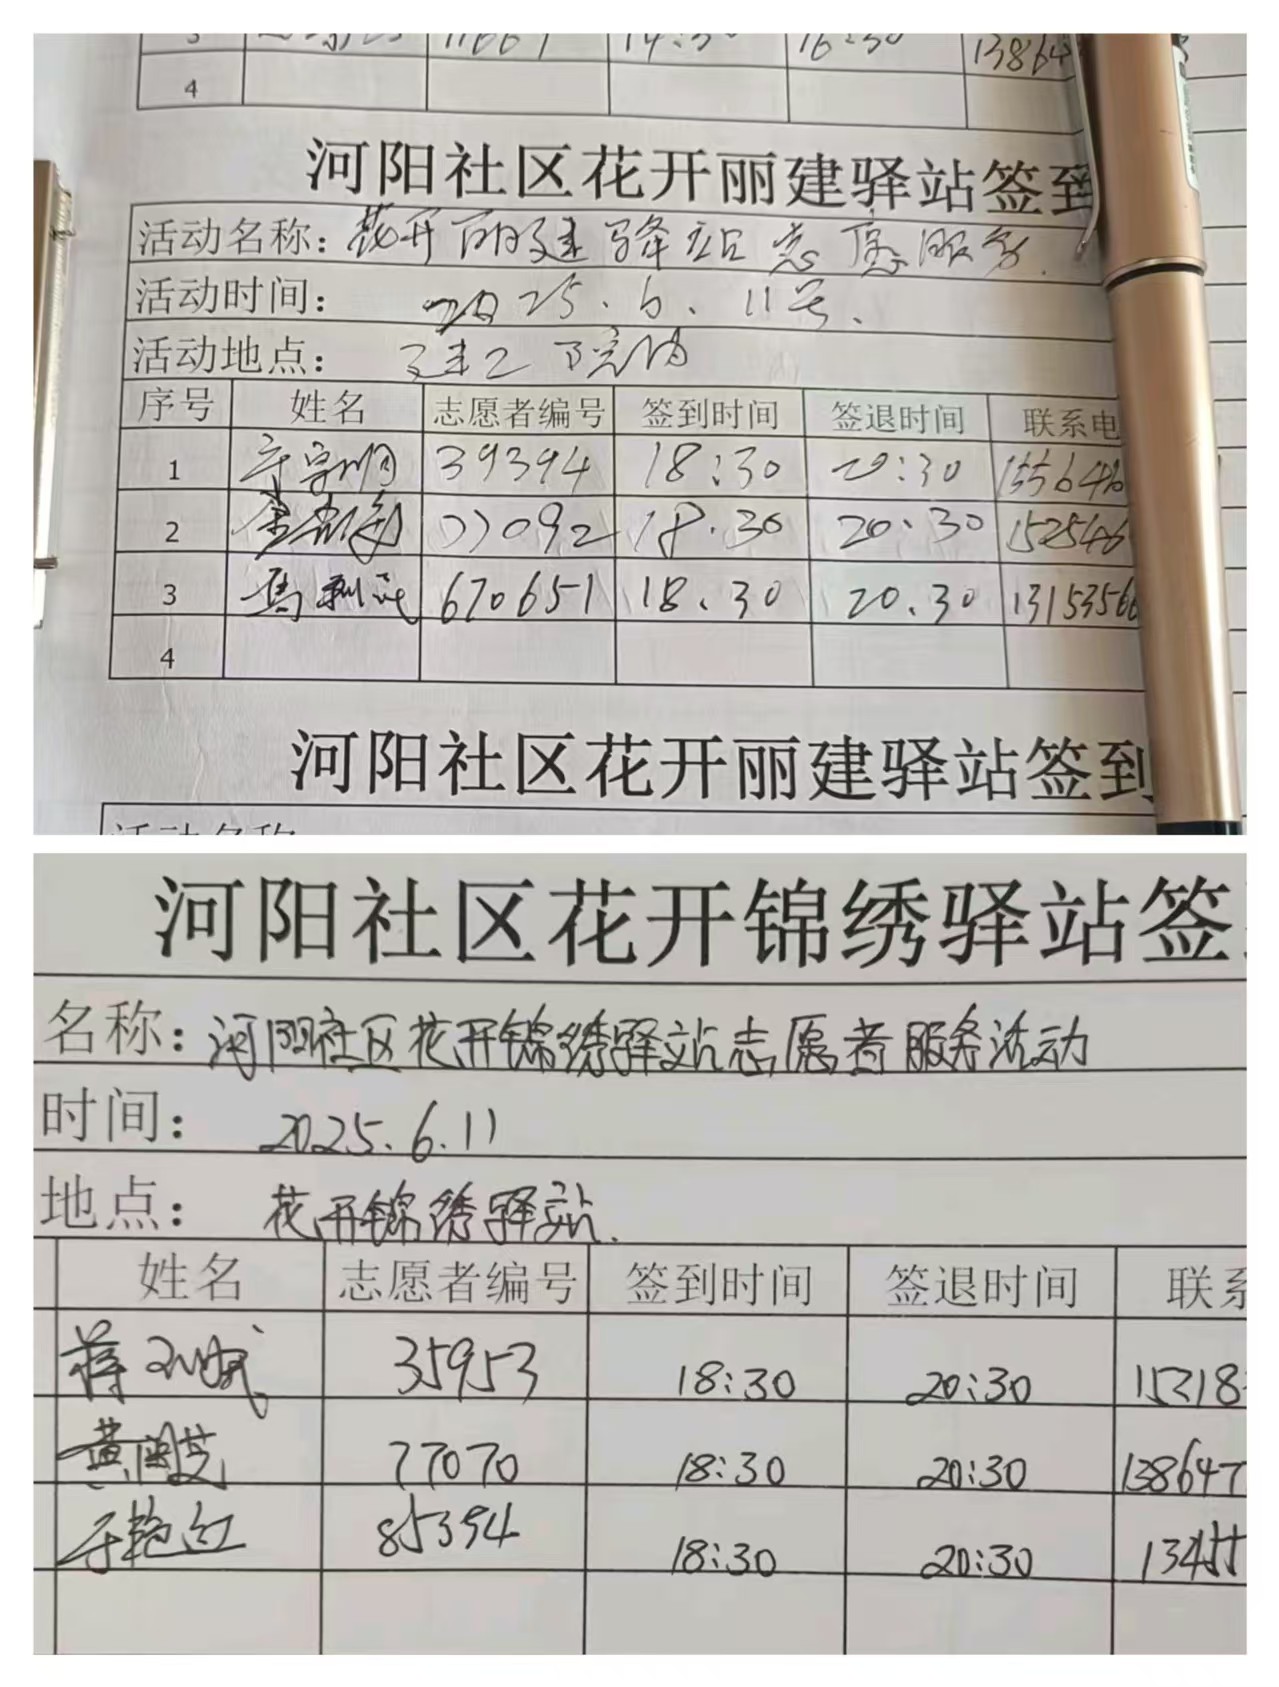 4
河阳社区花开丽建驿站签到
活动名称：花开丽建驿站志愿服务.
活动时间： 2025.6.11号.
活动地点： 院内
序号 姓名 志愿者编号 签到时间 签退时间 联系电
1 39394 18:30 20:30 1556416
2 77092 18.30 20.30 152546
3 670651 18.30 20.30 1315356
4
河阳社区花开丽建驿站签到
活动名称
河阳社区花开锦绣驿站签
名称：河阳社区花开锦绣驿站志愿者服务活动
时间： 2025.6.11
地点： 花开锦绣驿站.
姓名 志愿者编号 签到时间 签退时间 联系
35953 18:30 20:30 15218
77070 18:30 20:30 138647
于艳红 85394 18:30 20:30 134